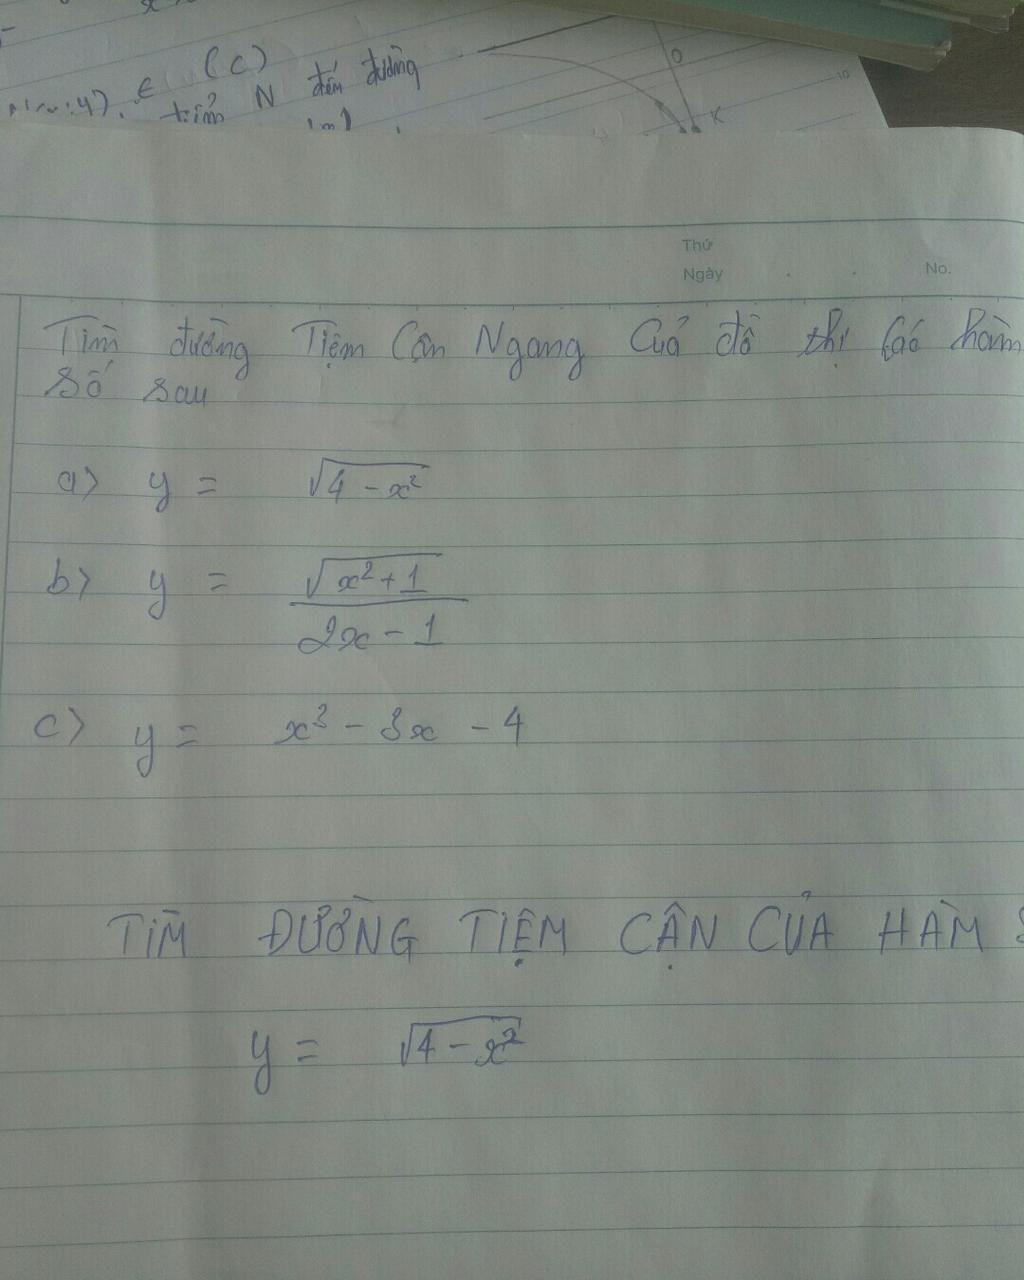 (C)
∈
N đến đường
O
K
10
Thứ
Ngày . .
No.
Tìm đường Tiệm Cận Ngang Củả đồ thị các hàm
số sau
a) y = √4 - x²
b) y = √x² + 1
2x - 1
c) y = x³ - 3x - 4
TÌM ĐƯỜNG TIỆM CẬN CỦA HÀM
y = √4 - x²